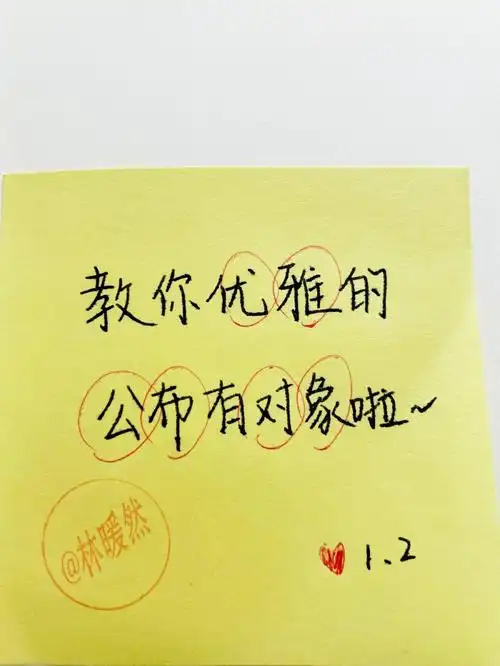 教你优雅的
公布有对象啦~
@林暖然
1.2